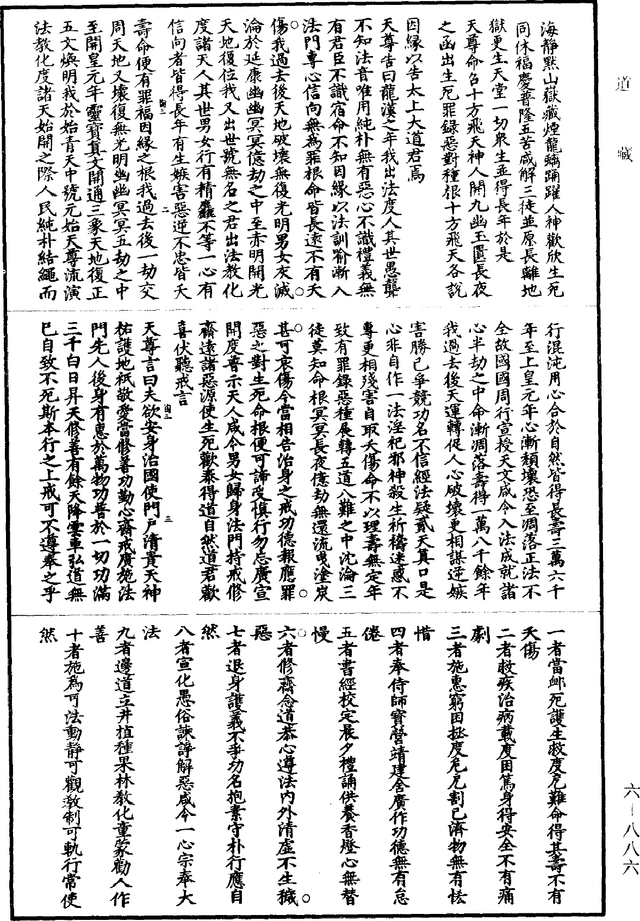 道藏
六—八八六
海靜默山嶽藏煙龍螭踊躍人神歡欣生死
同休福慶普隆五苦咸解三徒並原長離地
獄更生天堂一切衆生並得長年於是
天尊命召十方飛天神人開九幽玉匱長夜
之函出生死罪錄惡對種根十方飛天各說
因緣以告太上大道君焉
天尊告曰龍漢之年我出法度人其世愚聾
不知法音唯用純朴無有惡心不識禮義無
有君臣不識宿命不知因緣以法訓喻漸入
法門專心信向無爲罪根命皆長遠不有夭
傷我過去後天地破壞無復光明男女灰滅
淪於延康幽幽冥冥億劫之中至赤明開光
天地復位我又出世號無名之君出法教化
度諸天人其世男女行有精麤不等一心有
信向者皆得長年有生嫉害惡逆不忠皆夭
壽命便有罪福因緣之根我過去後一劫交
周天地又壞復無光明幽幽冥冥五劫之中
至開皇元年靈寶真文開通三象天地復正
五文煥明我於始青天中號元始天尊流演
法教化度諸天始開之際人民純朴結繩而
行混沌用心合於自然皆得長壽三萬六千
年至上皇元年心漸頹壞恐至凋落正法不
全故國國周行宣授天文咸令入法成就諸
心半劫之中命漸凋落壽得一萬八千餘年
我過去後天運轉促人心破壞更相謀逆嫉
害勝己爭競功名不信經法疑貳天真口是
心非自作一法淫祀邪神殺生祈禱迷惑不
專更相殘害自取夭傷命不以理壽無定年
致有罪錄惡種展轉五道八難之中沈淪三
徒莫知命根冥冥長夜億劫無還流曳塗炭
甚可哀傷今當相告治身之戒功德報應罪
惡之對生死命根便可諦受慎行勿怠廣宣
開度普示天人咸令男女歸身法門持戒修
齋遠諸惡源使生死歡泰得道自然道君歡
喜伏聽戒言
天尊言曰夫欲安身治國使門戶清貴天神
祐護地祇敬愛當修善功勤心齋戒廣施法
門先人後身有惠於萬物功普於一切功滿
三千白日昇天修善有餘天降雲車弘道無
已自致不死斯本行之上戒可不遵奉之乎
一者當衈死護生救度厄難命得其壽不有
夭傷
二者救疾治病載度困篤身得安全不有痛
劇
三者施惠窮困拯度危厄割己濟物無有怯
惜
四者奉侍師寶營靖建舍廣作功德無有怠
倦
五者書經校定晨夕禮誦供養香燈心無替
慢
六者修齋念道恭心遵法內外清虛不生穢
惡
七者退身護義不爭功名抱素守朴行應自
然
八者宣化愚俗諫諍解惡咸令一心宗奉大
法
九者邊道立井植種果林教化童蒙勸人作
善
十者施爲可法動靜可觀教制可軌行常使
然